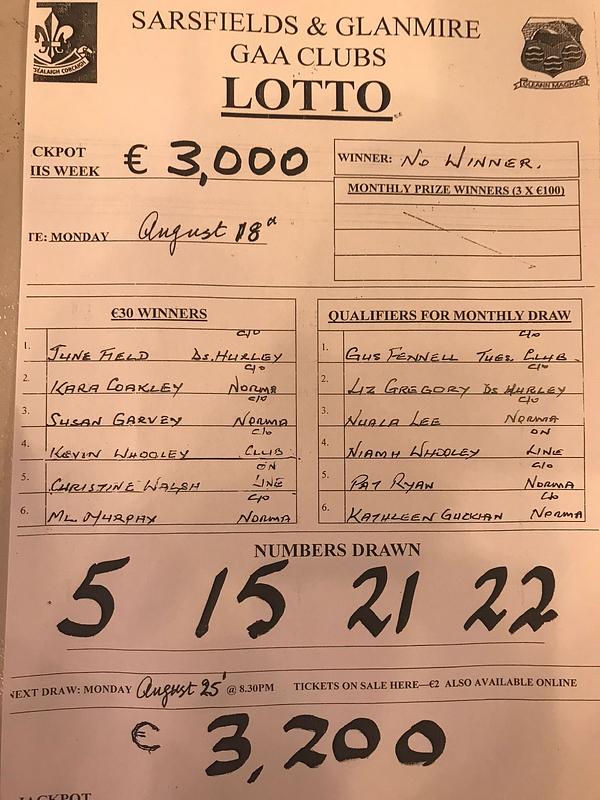 SARSFIELDS & GLANMIRE
GAA CLUBS
LOTTO
GLEANN MAGHAIR
CKPOT
IIS WEEK
€ 3,000
WINNER: NO WINNER.
MONTHLY PRIZE WINNERS (3 X €100)
TE: MONDAY August 18th
€30 WINNERS
1. JUNE FIELD c/o Ds. HURLEY
2. KARA COAKLEY c/o NORMA
3. SUSAN GARVEY c/o NORMA
4. KEVIN WHOOLEY c/o CLUB
5. CHRISTINE WALSH ON LINE
6. ML MURPHY c/o NORMA
QUALIFIERS FOR MONTHLY DRAW
1. GUS FENNELL c/o TUES. CLUB.
2. LIZ GREGORY c/o Ds HURLEY
3. NUALA LEE c/o NORMA
4. NIAMH WHOOLEY ON LINE
5. PAT RYAN c/o NORMA
6. KATHLEEN GUCKIAN c/o NORMA
NUMBERS DRAWN
5 15 21 22
NEXT DRAW: MONDAY August 25' @ 8.30PM TICKETS ON SALE HERE—€2 ALSO AVAILABLE ONLINE
€ 3,200
JACKPOT